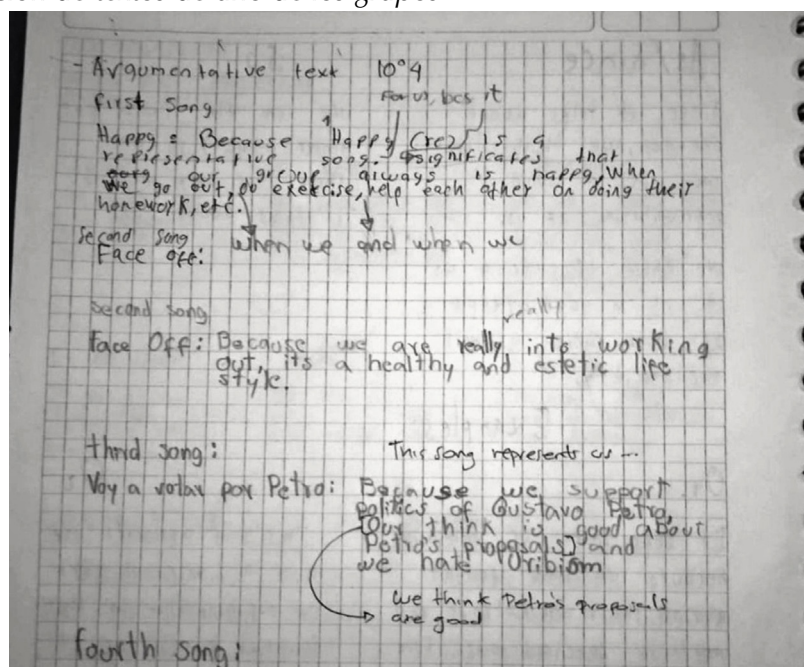 - Argumentative text 10°4
First Song
For us, bcs it
Happy: Because Happy (re) is a
representative song. significates that
our group always is happy, when
We go out, do exercise, help each other on doing their
homework, etc.
second song
Face off: when we and when we
second song
really
Face Off: Because we are really into working
out, its a healthy and estetic life
style.
third song: This song represents us --
Voy a votar por Petro: Because we support
politics of Gustavo Petro,
Our think is good about
Petro's proposals) and
we hate Uribism
we think Petro's proposals
are good
fourth song: